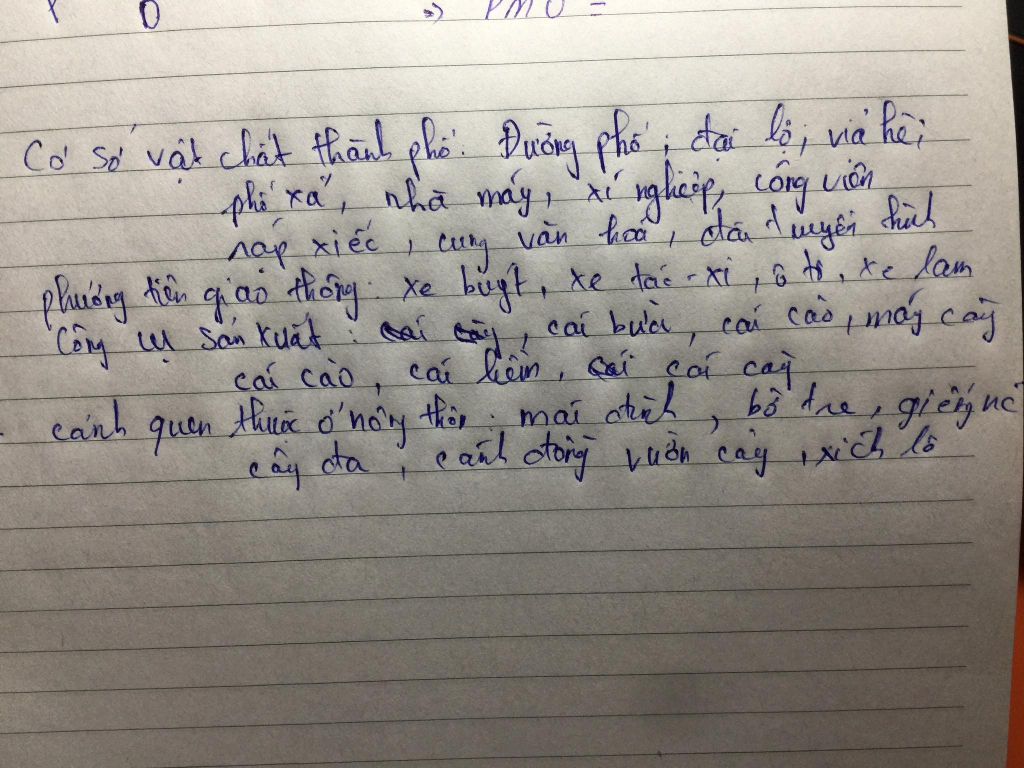 => PMO =
Cơ sở vật chất thành phố: Đường phố; đại lộ; vỉa hè;
phố xá, nhà máy, xí nghiệp, công viên
rạp xiếc, cung văn hoá, đài truyền hình
phương tiện giao thông: xe buýt, xe tắc-xi, ô tô, xe lam
Công cụ sản xuất: cái cày, cái bừa, cái cào, máy cày
cái cào, cái liềm, cái cày
cảnh quen thuộc ở nông thôn: mái đình, bờ tre, giếng nc
cây đa, cánh đồng vườn cây, xích lô